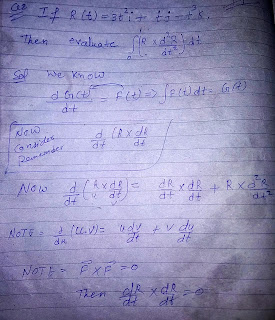 Q2 If R(t) = 3t² i + t j - t³ k.
Then evaluate ∫₀¹ (R × d²R/dt²) dt
Sol We know
d G(t)/dt = F(t) ⇒ ∫F(t) dt = G(t)
Now
consider
Remember
d/dt (R × dR/dt)
Now d/dt (R × dR/dt) = dR/dt × dR/dt + R × d²R/dt²
NOTE = d/dx (U.V) = u dv/dt + v du/dt
NOTE = F × F = 0
Then dR/dt × dR/dt = 0